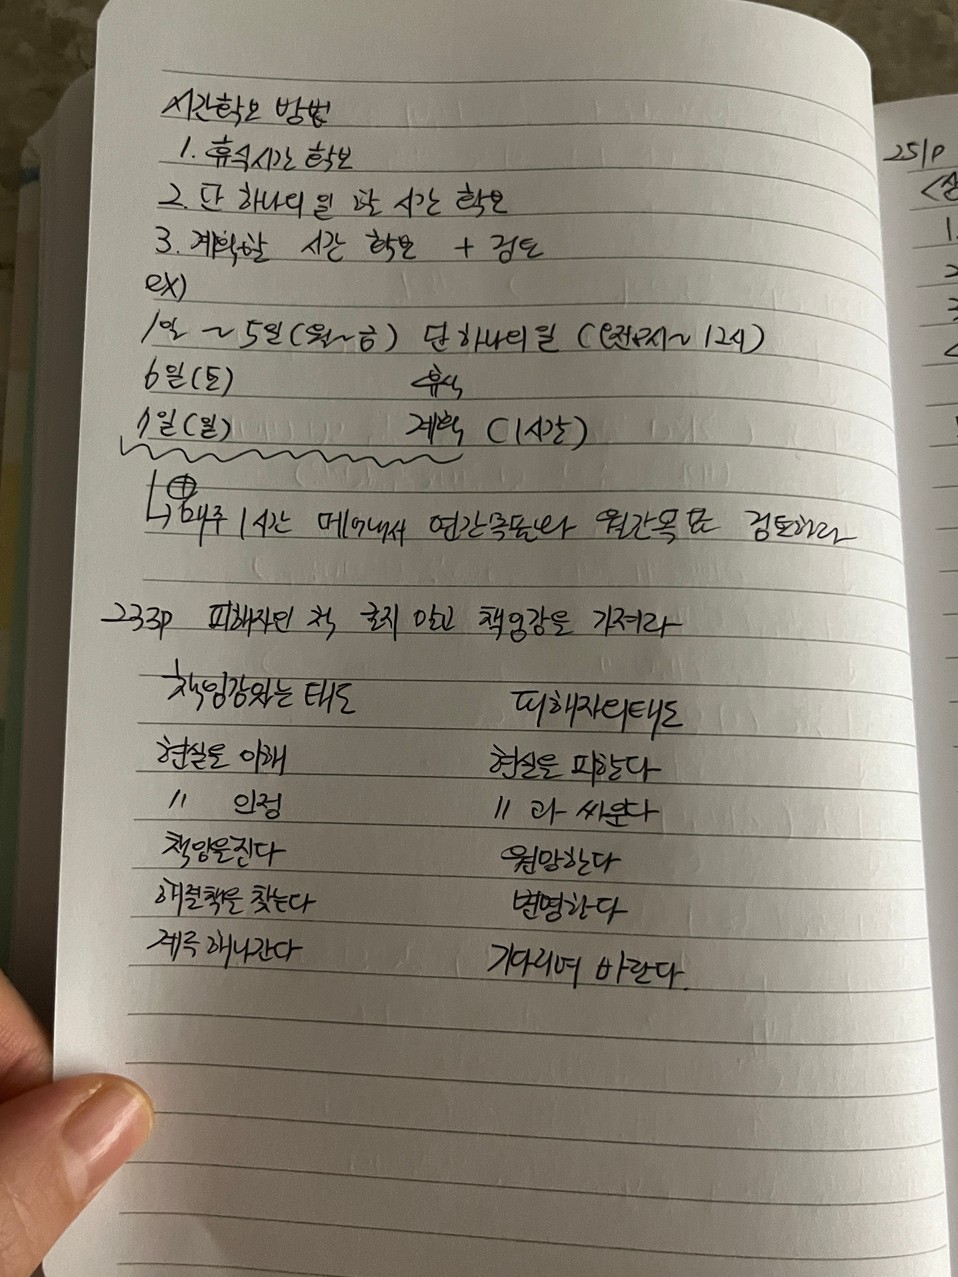 시간확보 방법
1. 휴식시간 확보
2. 단 하나의 일 할 시간 확보
3. 계획할 시간 확보 + 검토
ex)
1일 ~ 5일 (월~금) 단 하나의 일 ( ~ 12시)
6일 (토) 휴식
7일 (일) 계획 (1시간)
매주 1시간 떼어내서 연간목표와 월간목표 검토하라
233p 피해자인 척 굴지 않고 책임감을 가져라
책임감있는 태도 피해자의 태도
현실을 이해 현실을 피한다
〃 인정 〃 과 싸운다
책임을진다 원망한다
해결책을 찾는다 변명한다
계속 해나간다 기다리며 바란다.
251p
1.